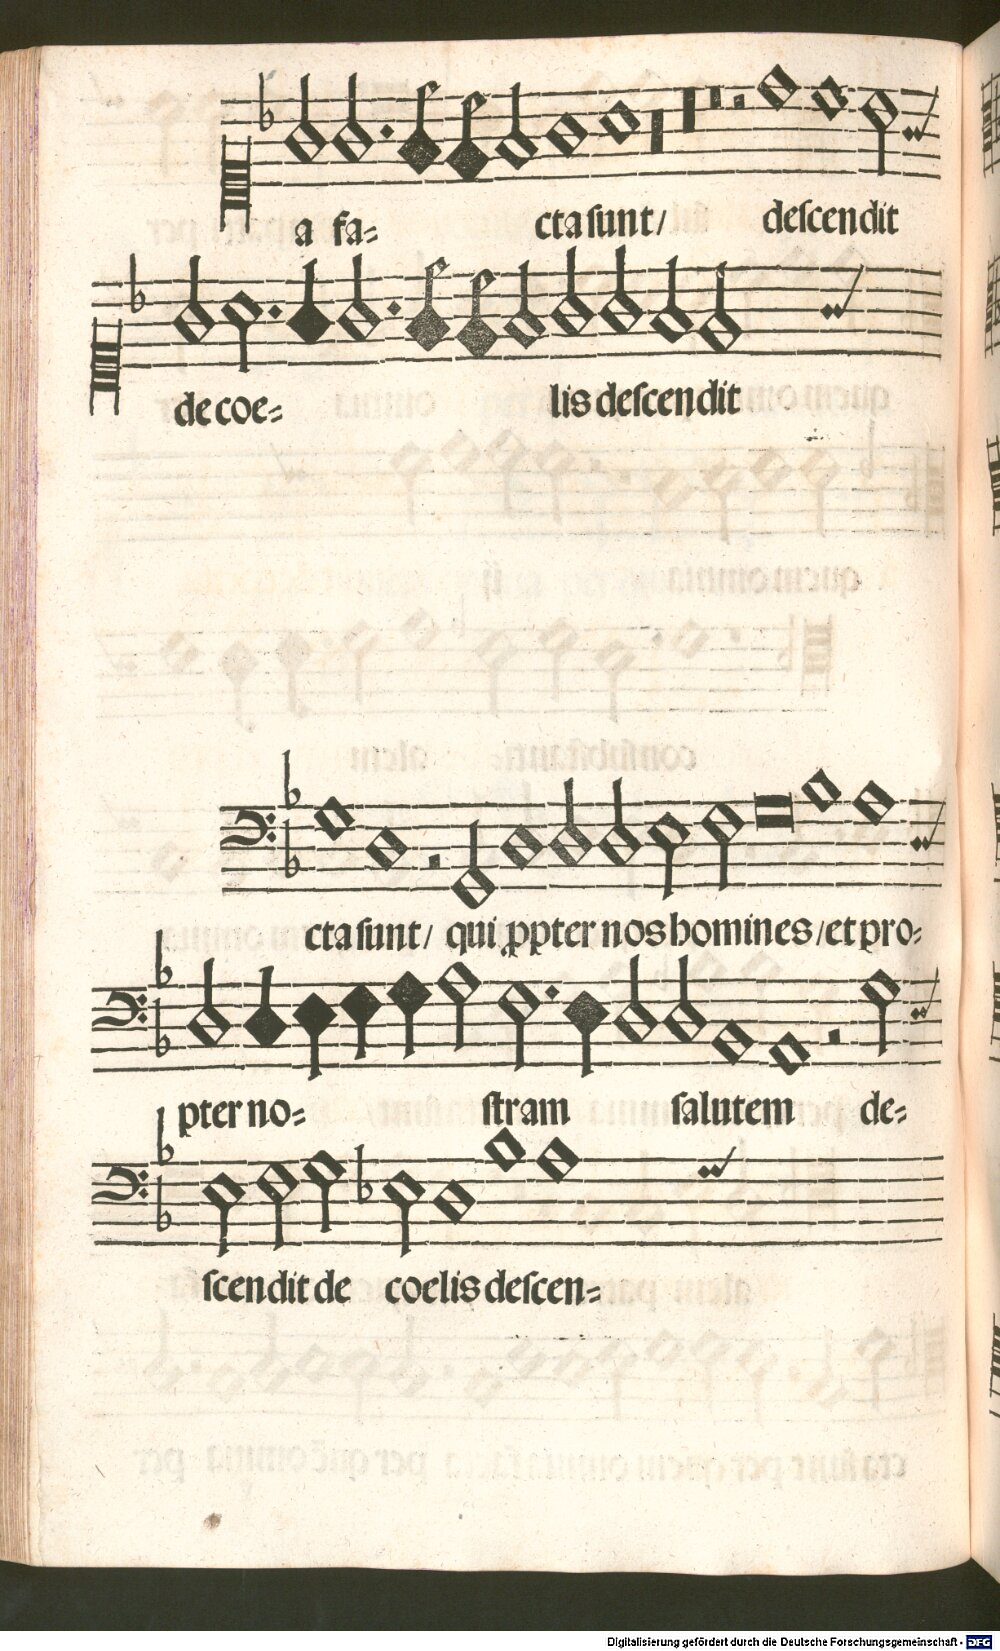 a fa= cta sunt/ descendit
de coe= lis descendit
cta sunt/ qui ꝓpter nos homines/et pro=
pter no= stram salutem de=
scendit de coelis descen=
Digitalisierung gefördert durch die Deutsche Forschungsgemeinschaft - DFG